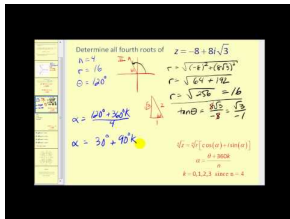 Determine all fourth roots of z = -8 + 8i√3
n = 4
r = 16
θ = 120°
r = √((-8)² + (8√3)²)
r = √(64 + 192)
r = √256 = 16
tanθ = 8√3/-8 = √3/-1
α = (120° + 360°k)/4
α = 30° + 90°k
ⁿ√z = ⁿ√r [cos(α) + i sin(α)]
α = (θ + 360k)/n
k = 0,1,2,3 since n = 4